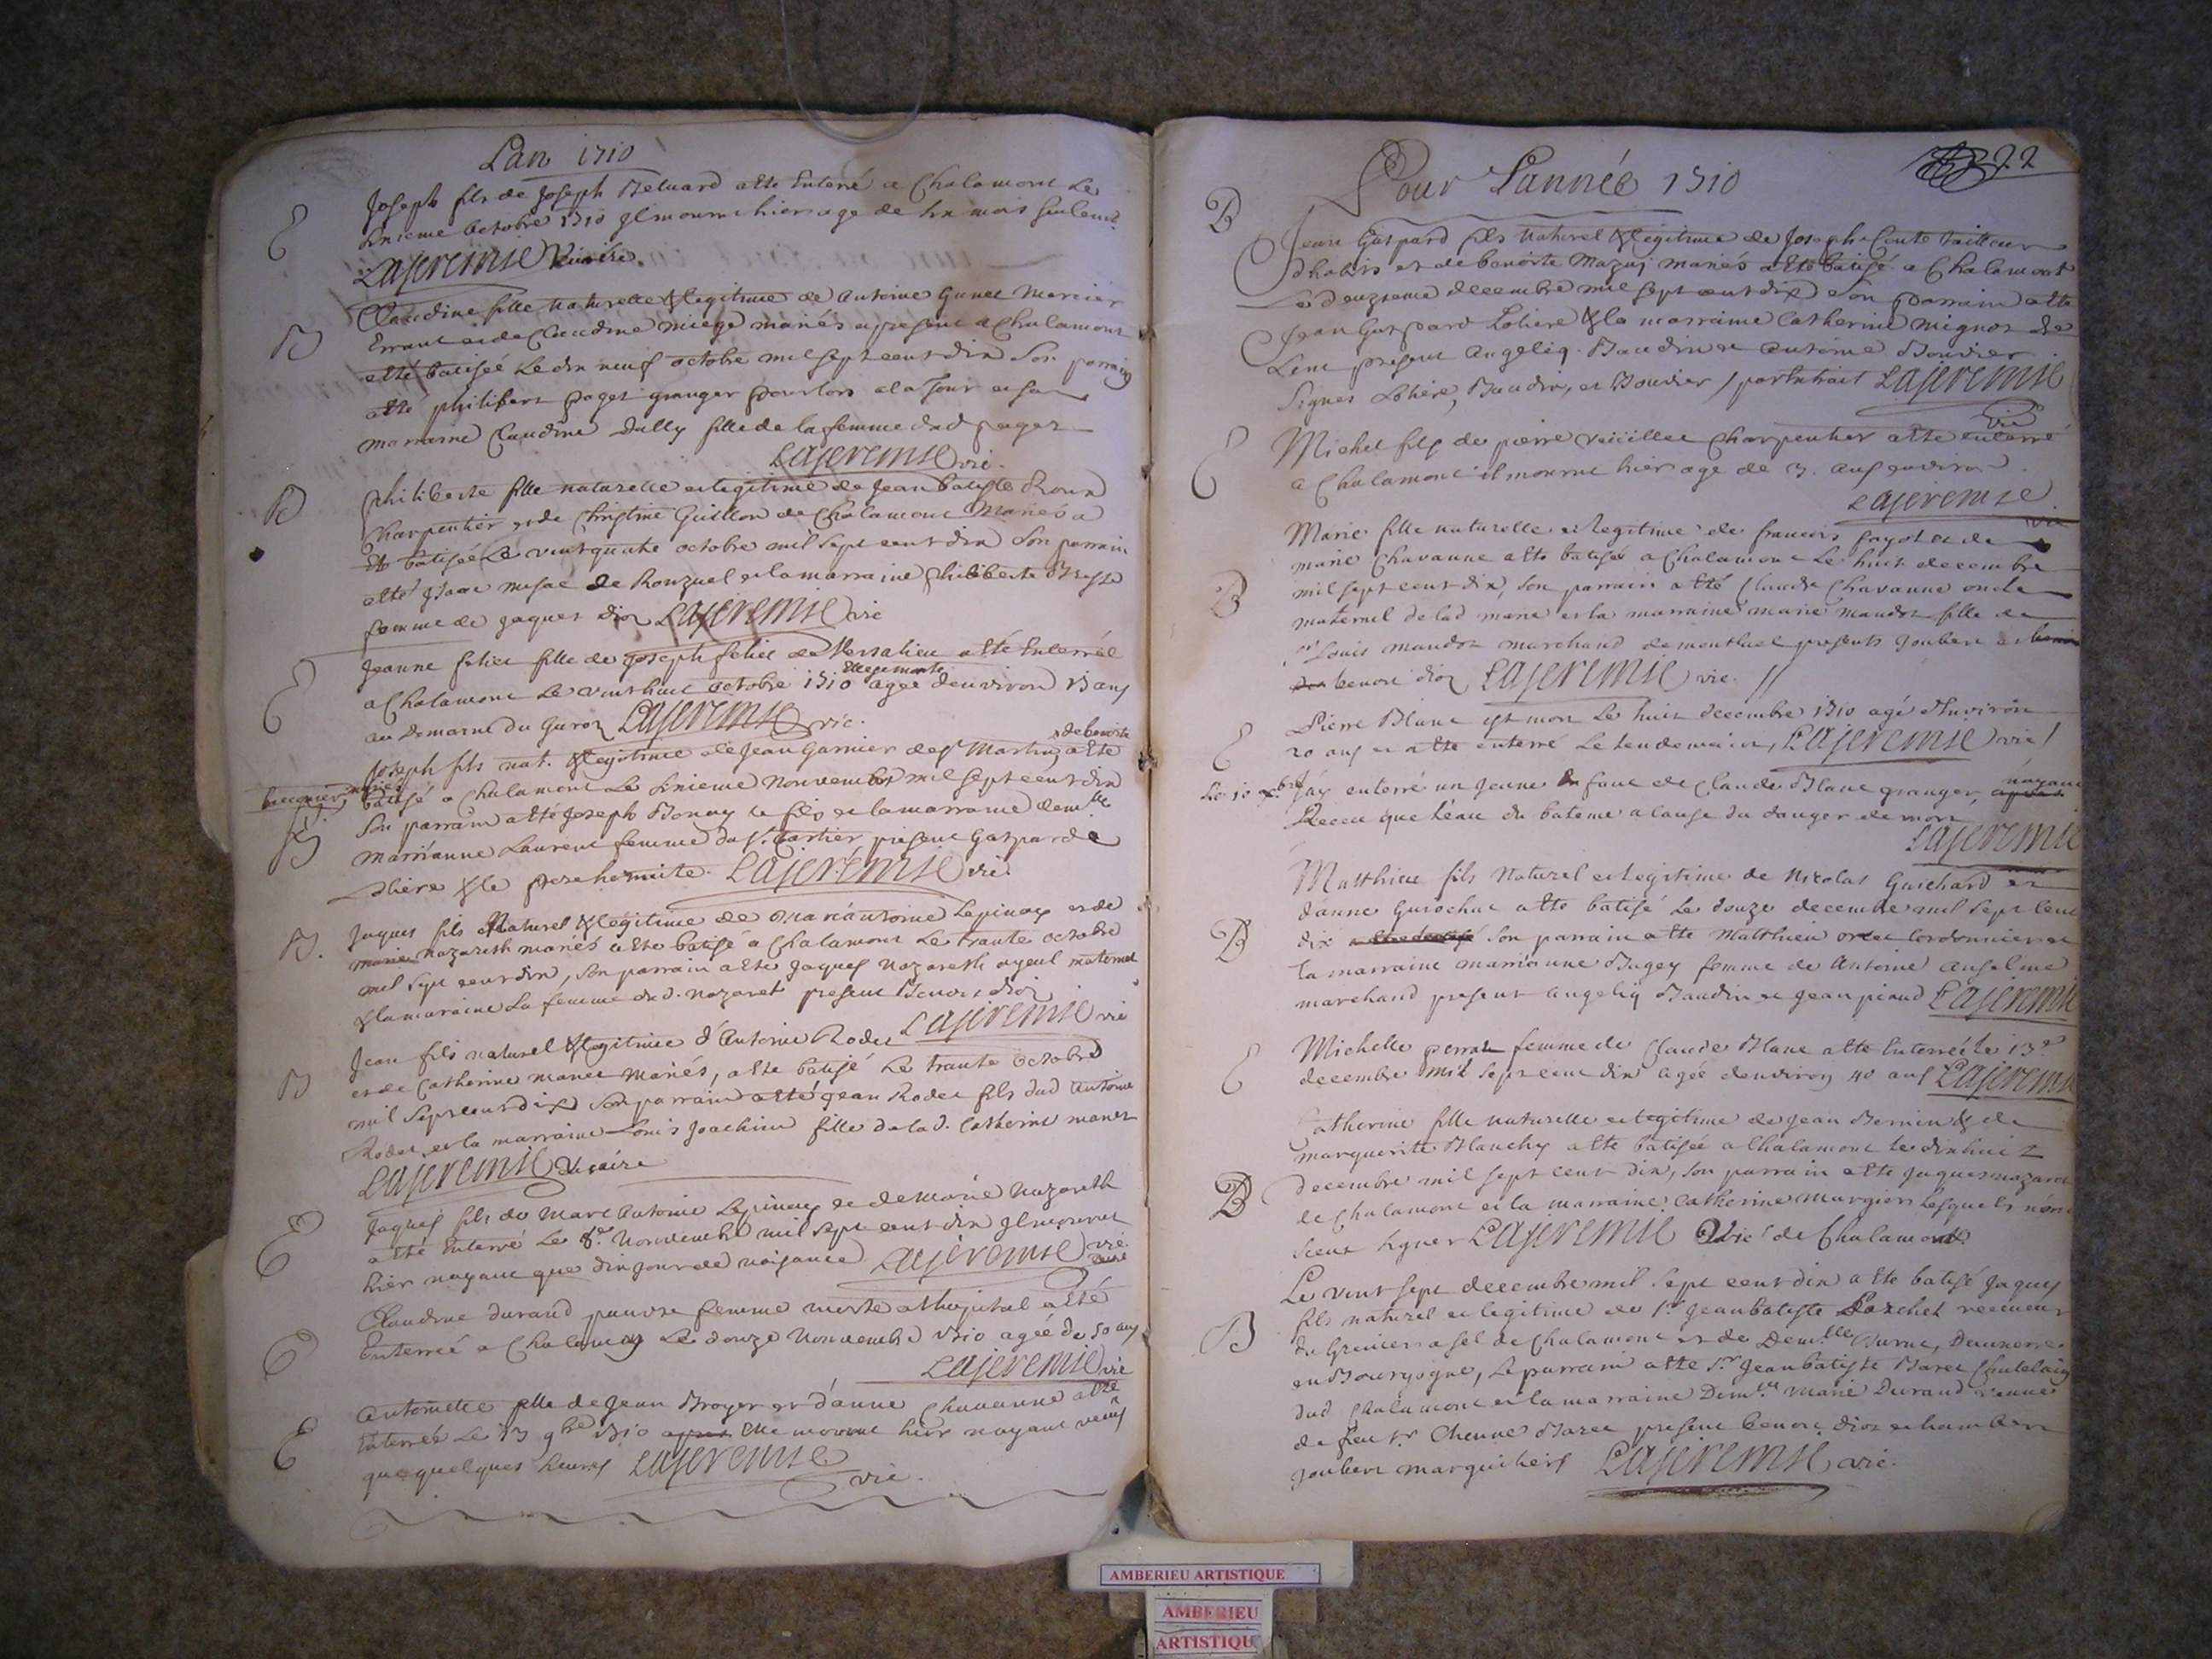 Lan 1710
E
Joseph fils de Joseph Beluard a ete Enterré a Chalamont Le
sixieme octobre 1710 il mourut hier age de six mois seulemt
Lajeremie vicaire
B
Claudine fille naturelle & legitime de antoine Gunet Mercier
Errant et de Claudine miege mariés a present a Chalamont
a eté batisée Le dix neuf octobre mil sept cent dix Son parrain
a eté philibert paget granger pour lors a la Tour et sa
marraine Claudine Dally fille de la femme dud paget
Lajeremie vic.
B
philiberte fille naturelle et legitime de Jean batiste
Charpentier et de Christine Guillon de Chalamont Mariés a
Eté batisée Le vint quatre octobre mil sept cent dix Son parrain
a eté de Ronzuel et la marraine philiberte
femme de Jaques dioz Lajeremie vic
E
Jeanne felix fille de Joseph felix de Versalieu a eté Enterrée
a Chalamont Le vint huit octobre 1710 Elle est morte agée denviron 13 ans
au Domaine du Lajeremie vic.
Joseph fils nat. & legitime de Jean Garnier de St Martin & de benoite
mariés a eté
B
batisé a Chalamont Le sixieme Nouvembre mil sept cent dix
Son parrain a eté Joseph Bonay le fils et la marraine demlle
Marrianne Laurent femme du Sr. Cartier present Gaspard
& le pere hermite. Lajeremie vic
B.
Jaques fils Naturel & legitime de Marc antoine Lepinay et de
marie Nazareth mariés a ete batisé a Chalamont Le trante octobre
mil sept cent dix, Son parrain a eté Jaques Nazareth ayeul maternel
& la maraine La femme dud. Nazaret present Benoit dioz
Lajeremie vic
B
Jean fils naturel & legitime d'Antoine Rodet
et de Catherine Manet Mariés, a ete batisé Le trante octobre
mil sept cent dix Son parrain a eté Jean Rodet fils dud Antoine
Rodet et la marraine Louis Joachim fille de lad. Catherine manet
Lajeremie vicaire
E
Jaques fils de Marc Antoine Lepinay et de Marie Nazareth
a eté Enterré Le 8e Nouvembre mil sept cent dix il mourut
hier nayant que dix jour de naissance Lajeremie vic
E
Claudine durand pauvre femme morte a lhopital a eté
Enterrée a Chalamon Le douze Nouvembre 1710 agée de 50 ans
Lajeremie vic
E
Antoinette fille de Jean Broyer et d'anne Chavanne a eté
Enterrée Le 13 9bre 1710 Elle mourut hier nayant vecus
que quelques heures Lajeremie
vic.
22
Pour Lannée 1710
B
Jean Gaspard fils naturel & legitime de Joseph Conte tailleur
dhabis et de benoite Mazuj mariés a eté batisé a Chalamont
Le deuzieme decembre mil sept cent dix Son parrain a ete
Jean Gaspard Loliere & la marraine Catherine mignot de
Lent present Angeliq. Baudin et Antoine Bouvier
Signés Loliere, Baudin, et Bouvier Lajeremie
vic
E
Michel fils de pierre Charpentier a ete enterré
a Chalamont il mourut hier age de 3. ans environ.
Lajeremie
vic
B
Marie fille naturelle et legitime de francois fayolet de
marie Chavanne a ete batisée a Chalamont Le huit decembre
mil sept cent dix, Son parrain a eté Claude Chavanne oncle
maternel de lad marie et la marraine marie maudoz fille de
sr Louis maudoz marchand de montluel presents Joubert et
benoit dioz Lajeremie vic.
E
Pierre Blanc est mort Le huit decembre 1710 agé d'Environ
20 ans et a ete enterré Le lendemain, Lajeremie vic
Le 10 xbre Jay enterré un Jeune Enfant de Claude Blanc granger, nayant
Receu que leau du bateme a cause du danger de mort
Lajeremie
B
Matthieu fils Naturel et Legitime de Nicolas Guichard et
d'anne a ete batisé Le douze decembre mil sept cent
dix Son parrain a ete Matthieu cordonnier et
la marraine marrianne Bugey femme de Antoine Anselme
marchand present Angeliq Baudin et Jean Lajeremie
E
Michelle perrat femme de Claude Blanc a ete Enterrée le 13e
decembre mil sept cent dix agée denviron 40 ans Lajeremie
B
Catherine fille naturelle et legitime de Jean Bernier & de
marguerite Blanchy a ete batisée a Chalamont le dix huit
decembre mil sept cent dix, Son parrain a ete Jaques nazaret
de Chalamont et la marraine Catherine murgier Lesquels n'ont
sceut signer Lajeremie Vic. de Chalamont
B
Le vint sept decembre mil sept cent dix a ete batisé Jaques
fils naturel et legitime de Sr Jean batiste receveur
du Grenier a sel de Chalamont et de Demlle
en Bourgogne, Le parrain a ete Sr Jean batiste Baret Chatelain
dud Chalamont et la marraine Demlle Marie Durand veuve
de feu Sr Baret present benoit dioz et
Joubert marguiliers Lajeremie vic.
AMBERIEU ARTISTIQUE
AMBERIEU
ARTISTIQU